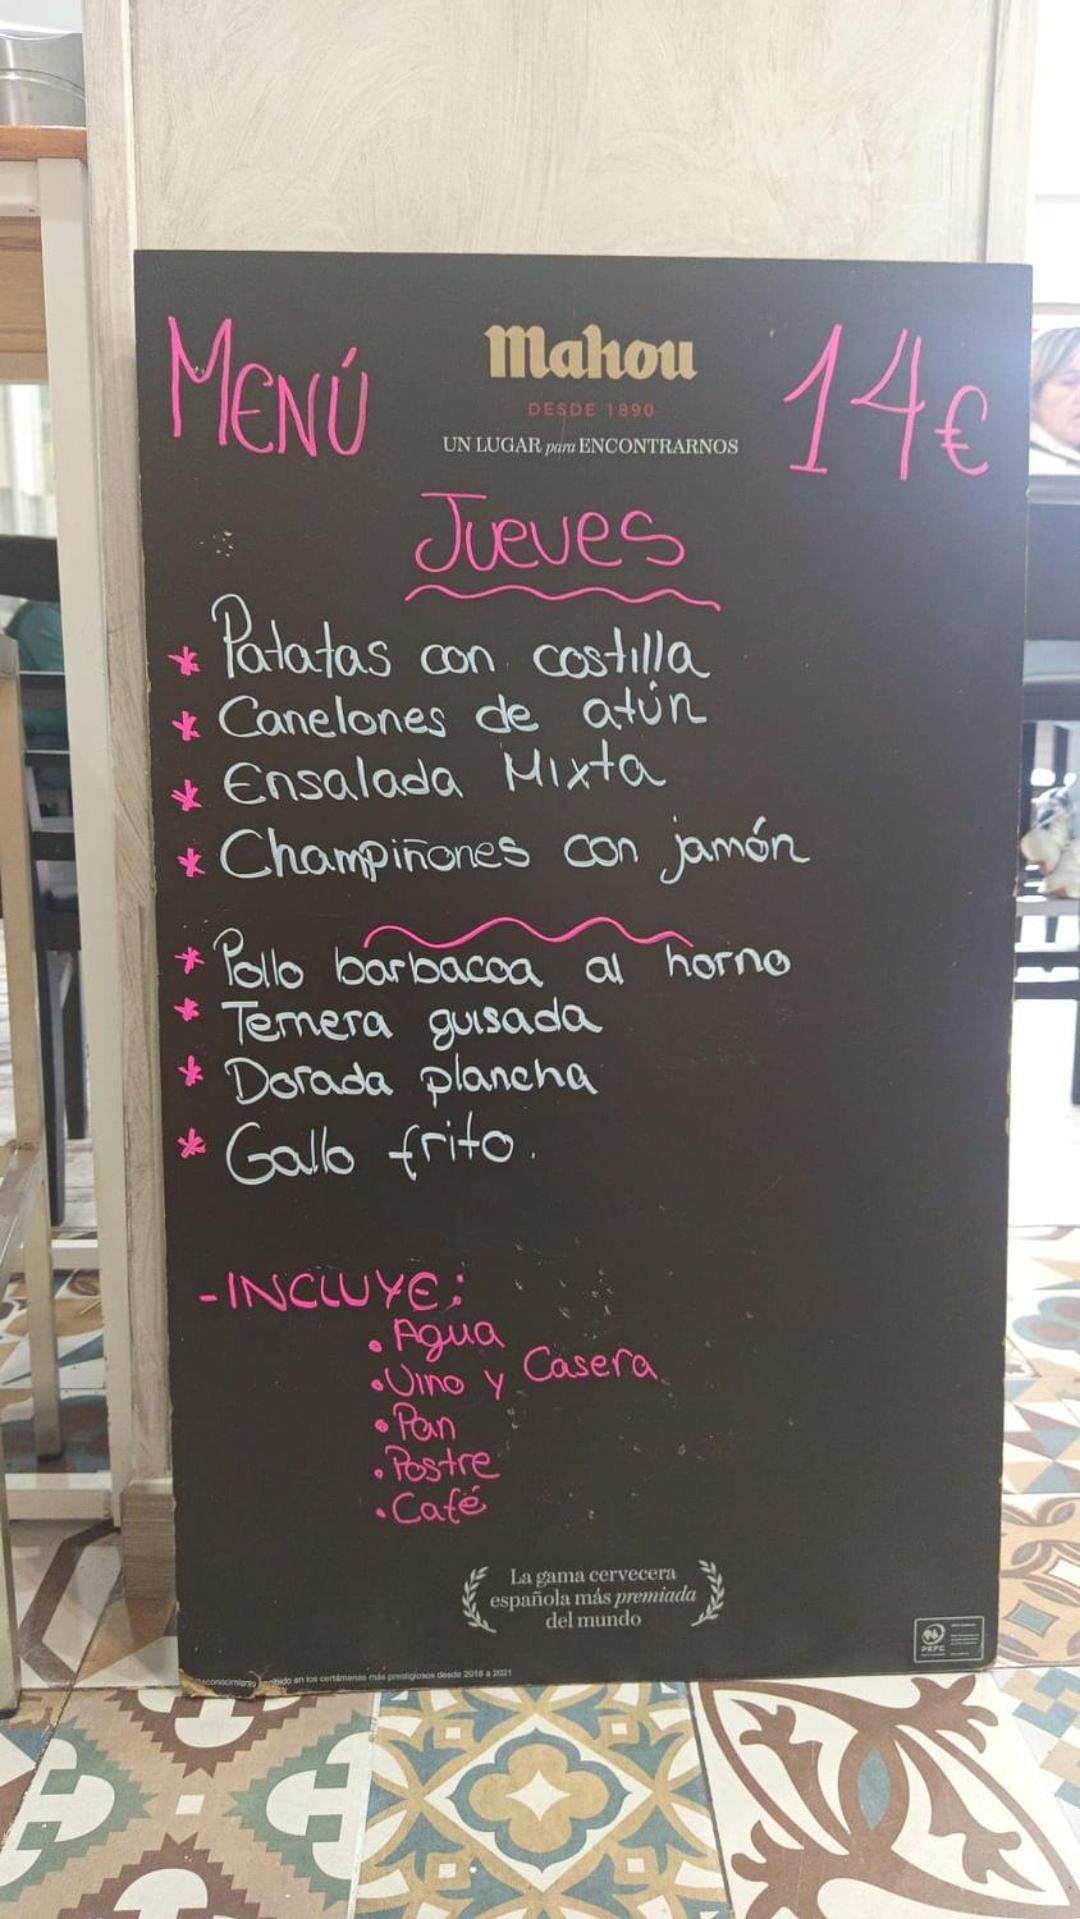 MENÚ
Mahou
DESDE 1890
UN LUGAR para ENCONTRARNOS
14€
Jueves
* Patatas con costilla
* Canelones de atún
* Ensalada Mixta
* Champiñones con jamón
* Pollo barbacoa al horno
* Ternera guisada
* Dorada plancha
* Gallo frito.
- INCLUYE:
• Agua
• Vino y Casera
• Pan
• Postre
• Café
La gama cervecera
española más premiada
del mundo
PEFC
en los certámenes más prestigiosos desde 2018 a 2021